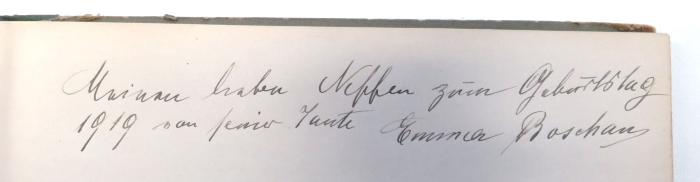 Meinem lieben Neffen zum Geburtstag
1919 von seiner Tante Emma Boschan